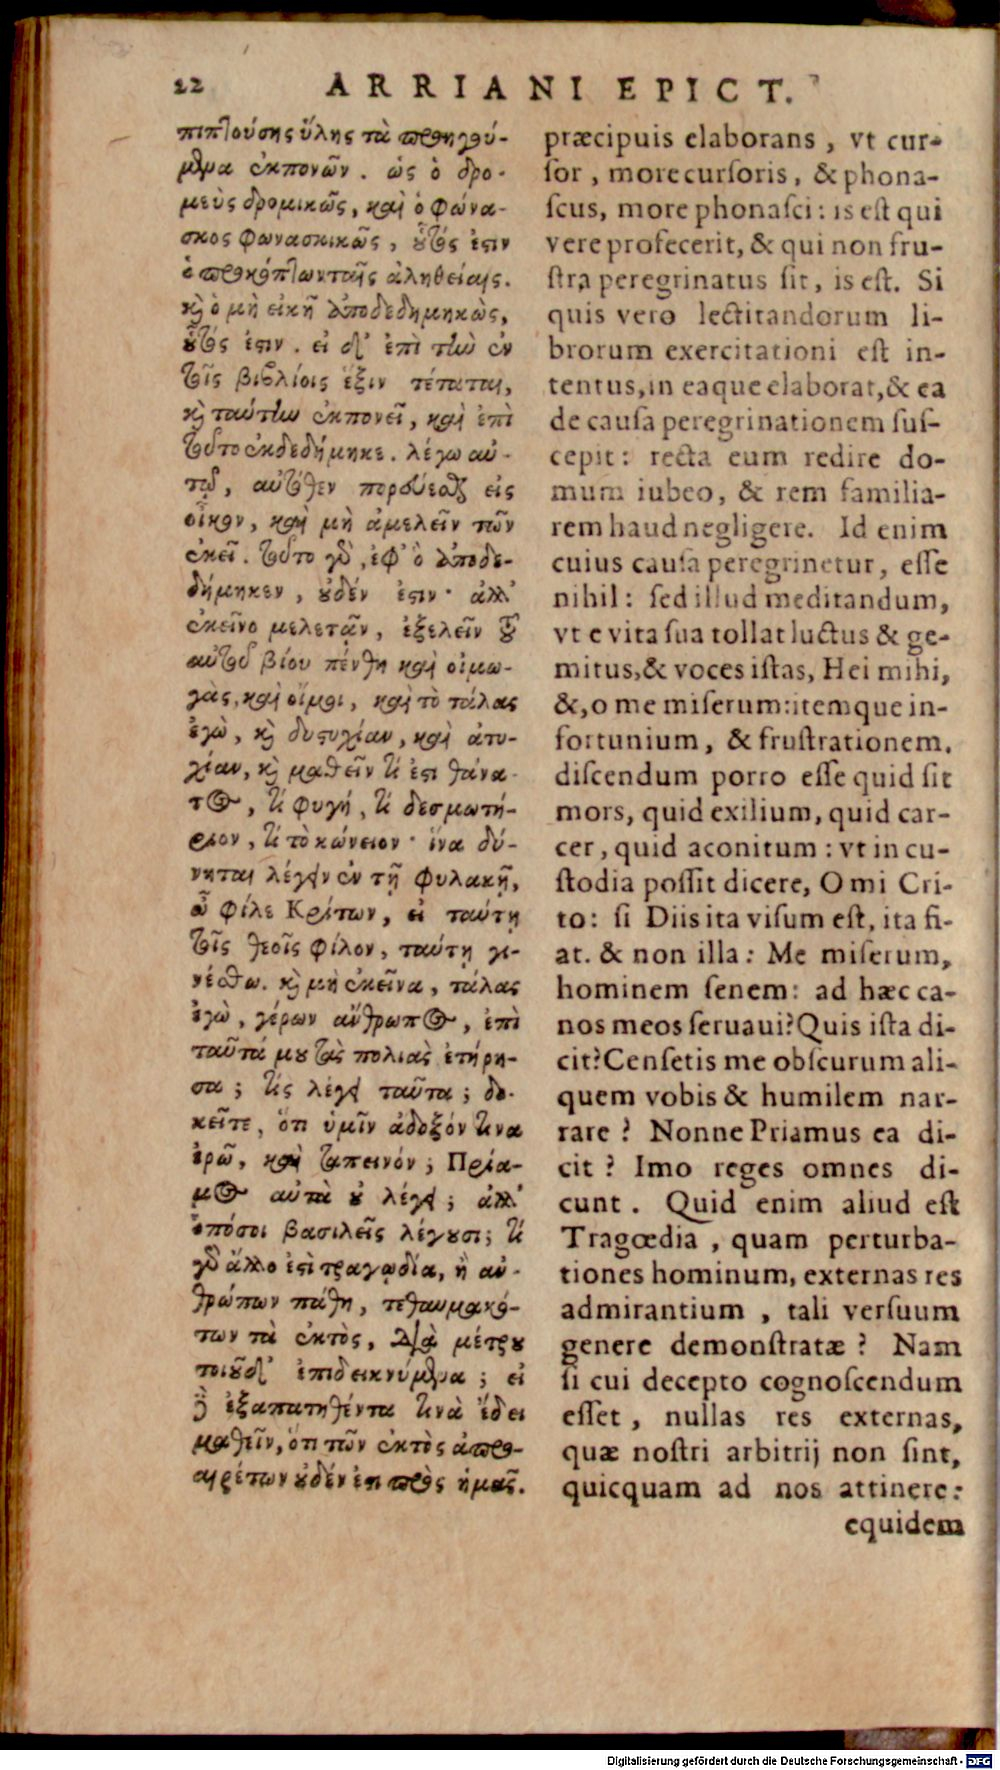 22 ARRIANI EPICT.
πιπτούσης ὕλης τὰ προηγού-
μενα ἐκπονῶν. ὡς ὁ δρο-
μεὺς δρομικῶς, καὶ ὁ φώνα-
σκος φωνασκικῶς, οὗτός ἐστιν
ὁ προκόπτων ταῖς ἀληθείαις.
καὶ ὁ μὴ εἰκῆ ἀποδεδημηκὼς,
οὗτός ἐστιν. εἰ δ' ἐπὶ τὴν ἐν
τοῖς βιβλίοις ἕξιν τέταται,
καὶ ταύτην ἐκπονεῖ, καὶ ἐπὶ
τοῦτο ἐκδεδήμηκε. λέγω αὐ-
τῷ, αὐτόθεν πορεύεσθαι εἰς
οἶκον, καὶ μὴ ἀμελεῖν τῶν
ἐκεῖ. τοῦτο γὰρ, ἐφ' ὃ ἀποδε-
δήμηκεν, οὐδέν ἐστιν· ἀλλ'
ἐκεῖνο μελετᾷν, ἐξελεῖν τοῦ
αὐτοῦ βίου πένθη καὶ οἰμω-
γὰς, καὶ οἴμοι, καὶ τὸ τάλας
ἐγὼ, καὶ δυστυχίαν, καὶ ἀτυ-
χίαν, καὶ μαθεῖν τί ἐστι θάνα-
τος, τί φυγή, τί δεσμωτή-
ριον, τί τὸ κώνειον· ἵνα δύ-
νηται λέγειν ἐν τῇ φυλακῇ,
ὦ φίλε Κρίτων, εἰ ταύτῃ
τοῖς θεοῖς φίλον, ταύτῃ γι-
νέσθω. καὶ μὴ ἐκεῖνα, τάλας
ἐγὼ, γέρων ἄνθρωπος, ἐπὶ
ταῦτά μου τὰς πολιὰς ἐτήρη-
σα; τίς λέγει ταῦτα; δο-
κεῖτε, ὅτι ὑμῖν ἄδοξόν τινα
ἐρῶ, καὶ ταπεινόν; Πρία-
μος αὐτὰ οὐ λέγει; ἀλλ'
ὁπόσοι βασιλεῖς λέγουσι; τί
γὰρ ἄλλο ἐστὶ τραγῳδία, ἢ ἀν-
θρώπων πάθη, τεθαυμακό-
των τὰ ἐκτὸς, διὰ μέτρου
τοιοῦδ' ἐπιδεικνύμενα; εἰ
δὲ ἐξαπατηθέντα τινὰ ἔδει
μαθεῖν, ὅτι τῶν ἐκτὸς ἀπρο-
αιρέτων οὐδέν ἐστι πρὸς ἡμᾶς.
præcipuis elaborans, vt cur-
ſor, more curſoris, & phona-
ſcus, more phonaſci: is eſt qui
vere profecerit, & qui non fru-
ſtra peregrinatus ſit, is eſt. Si
quis vero lectitandorum li-
brorum exercitationi eſt in-
tentus, in eaque elaborat, & ea
de cauſa peregrinationem ſuſ-
cepit: recta eum redire do-
mum iubeo, & rem familia-
rem haud negligere. Id enim
cuius cauſa peregrinetur, eſſe
nihil: ſed illud meditandum,
vt e vita ſua tollat luctus & ge-
mitus, & voces iſtas, Hei mihi,
&, o me miſerum: itemque in-
fortunium, & fruſtrationem.
diſcendum porro eſſe quid ſit
mors, quid exilium, quid car-
cer, quid aconitum: vt in cu-
ſtodia poſſit dicere, O mi Cri-
to: ſi Diis ita viſum eſt, ita fi-
at. & non illa: Me miſerum,
hominem ſenem: ad hæc ca-
nos meos ſeruaui? Quis iſta di-
cit? Cenſetis me obſcurum ali-
quem vobis & humilem nar-
rare? Nonne Priamus ea di-
cit? Imo reges omnes di-
cunt. Quid enim aliud eſt
Tragœdia, quam perturba-
tiones hominum, externas res
admirantium, tali verſuum
genere demonſtratæ? Nam
ſi cui decepto cognoſcendum
eſſet, nullas res externas,
quæ noſtri arbitrij non ſint,
quicquam ad nos attinere:
equidem
Digitalisierung gefördert durch die Deutsche Forschungsgemeinschaft - DFG